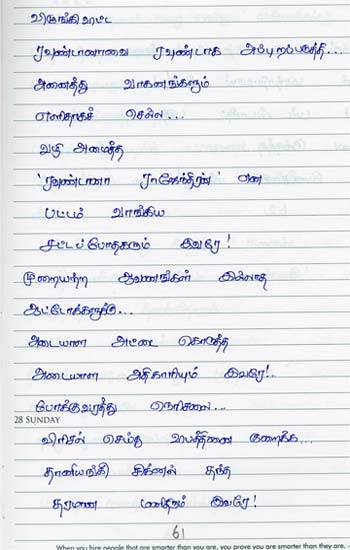 ரவுண்டானாவை ரவுண்டாக அப்புறப்படுத்தி...
அனைத்து வாகனங்களும்
எளிதாகச் செல்ல...
வழி அமைத்த
'ரவுண்டானா ராஜேந்திரன்' என
பட்டம் வாங்கிய
சட்டப்போதகரும் இவரே!
முறையற்ற ஆவணங்கள் இல்லாத
ஆட்டோக்களுக்கு...
அடையாள அட்டை கொடுத்த
அடையாள அதிகாரியும் இவரே!..
போக்குவரத்து நெரிசலை...
28 SUNDAY
விரிசல் செய்து குறைக்க...
தானியங்கி சிக்னல் தந்த
தரமான மனிதரும் இவரே!
61
When you hire people that are smarter than you are, you prove you are smarter than they are. -